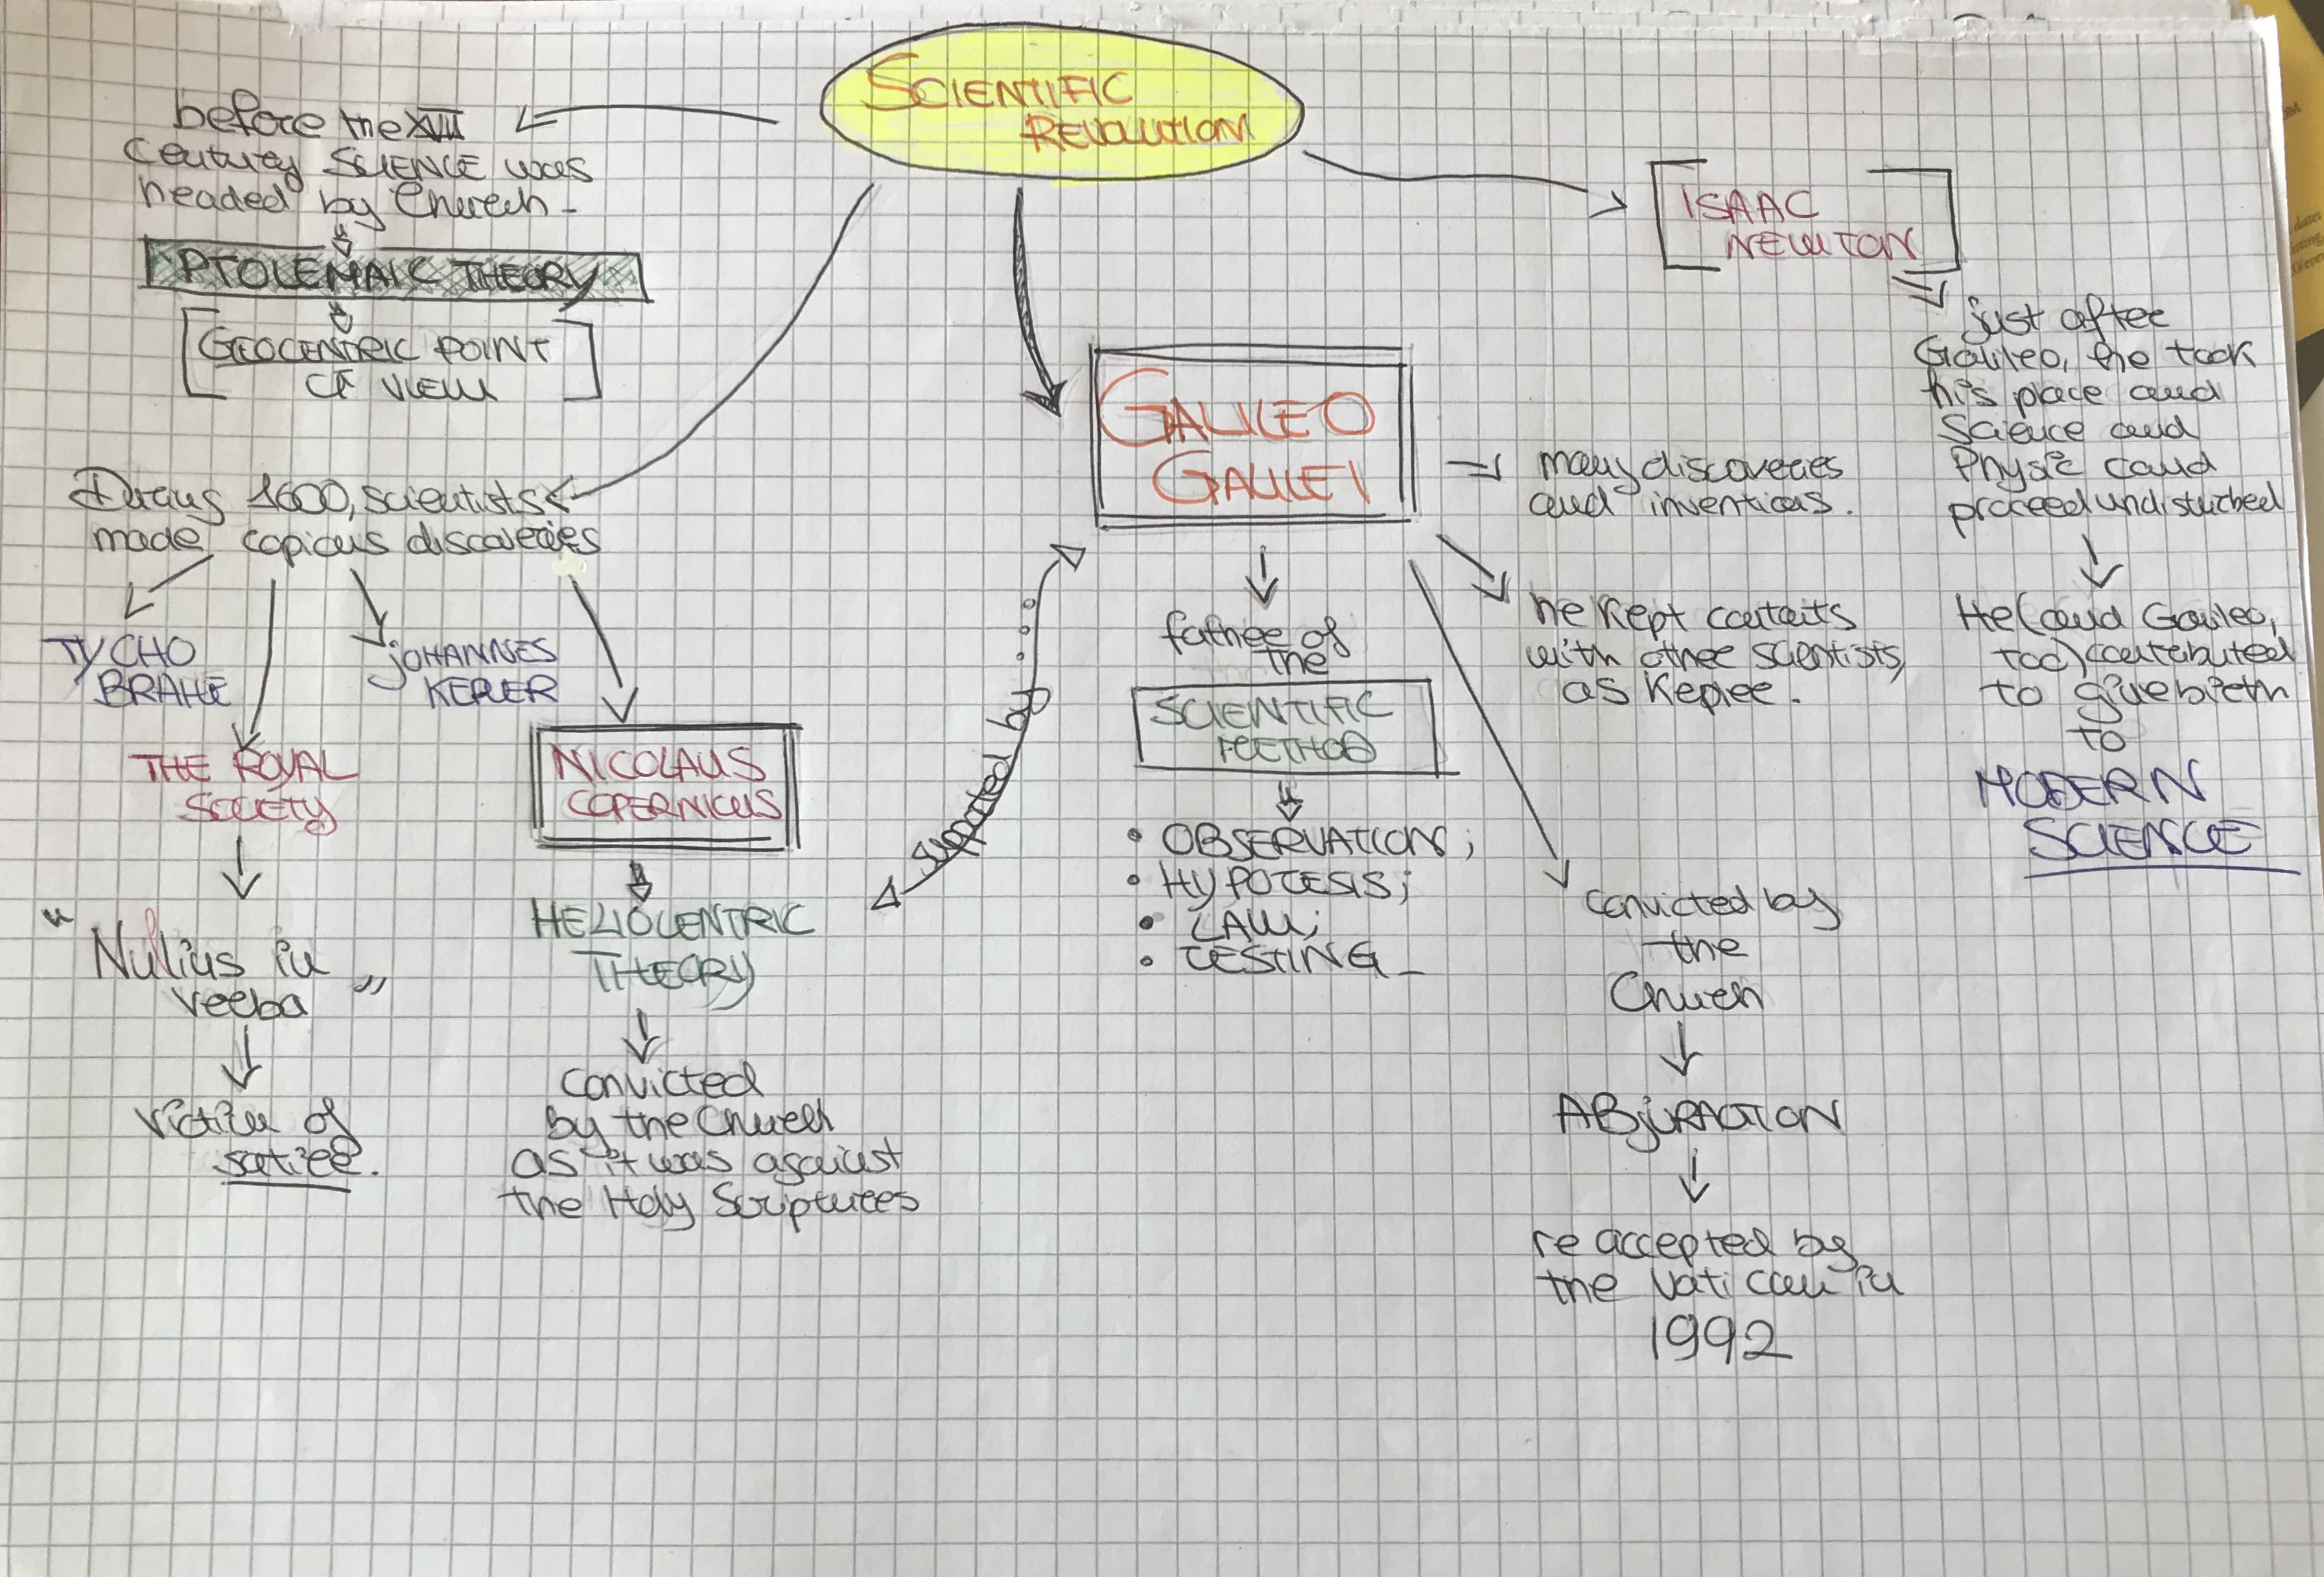 SCIENTIFIC
REVOLUTION
before the XVII
century SCIENCE was
headed by Church -
PTOLEMAIC THEORY
GEOCENTRIC POINT
OF VIEW
During 1600, scientists
made copious discoveries
TYCHO
BRAHE
JOHANNES
KEPLER
THE ROYAL
SOCIETY
"Nullius in
verba"
victim of
satire.
NICOLAUS
COPERNICUS
HELIOCENTRIC
THEORY
convicted
by the Church
as it was against
the Holy Scriptures
supported by....
GALILEO
GALILEI
father of
the
SCIENTIFIC
METHOD
• OBSERVATION;
• HYPOTESIS;
• LAW;
• TESTING -
many discoveries
and inventions.
he kept contacts
with other scientists,
as Kepler.
convicted by
the
Church
ABJURATION
re accepted by
the Vatican in
1992
ISAAC
NEWTON
just after
Galileo, he took
his place and
Science and
Physic could
proceed undisturbed
He (and Galileo,
too) contributed
to give birth
to
MODERN
SCIENCE